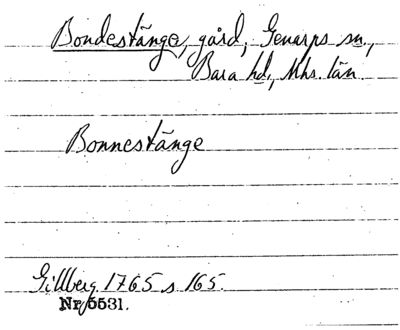 Bondestänge, gård, Genarps sn.,
Bara hd., Mhs. län.
Bonnestänge
Gillberg 1765 s. 165.
Nr 5531.